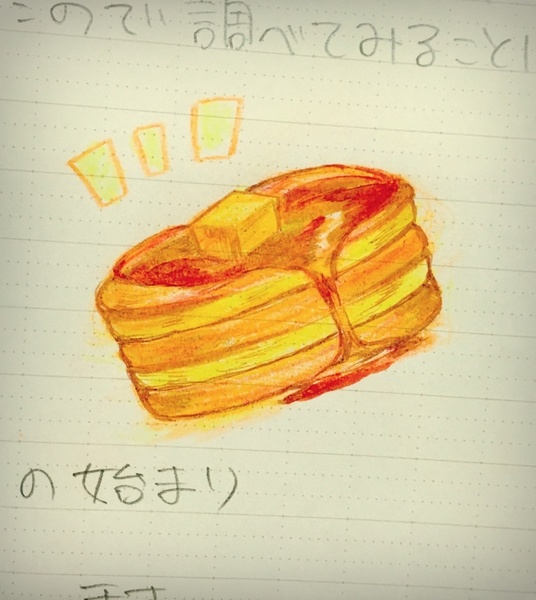 こので調べてみること
の始まり